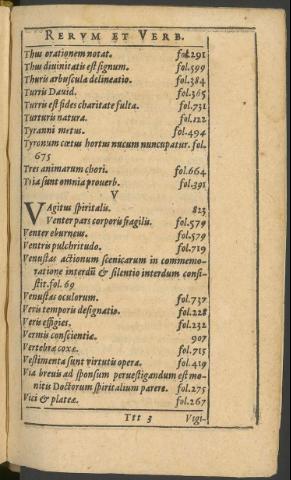 RERVM ET VERB.
Thus orationem notat. fol.291
Thus diuinitatis est signum. fol.599
Thuris arbuscula delineatio. fol.384
Turris Dauid. fol.365
Turris est fides charitate fulta. fol.731
Turturis natura. fol.122
Tyranni metus. fol.494
Tyronum cœtus hortus nucum nuncupatur. fol.
675
Tres animarum chori. fol.664
Tria sunt omnia prouerb. fol.391
V
VAgitus spiritalis. 823
Venter pars corporis fragilis. fol.579
Venter eburneus. fol.579
Ventris pulchritudo. fol.719
Venustas actionum scenicarum in commemo-
ratione interdū & silentio interdum consi-
stit.fol. 69
Venustas oculorum. fol.737
Veris temporis designatio. fol.228
Veris effigies. fol.232
Vermis conscientiæ. 907
Vertebræ coxæ. fol.715
Vestimenta sunt virtutis opera. fol.419
Via breuis ad sponsum peruestigandum est mo-
nitis Doctorum spiritalium parere. fol.275
Vici & plateæ. fol.267
Ttt 3 Vigi-